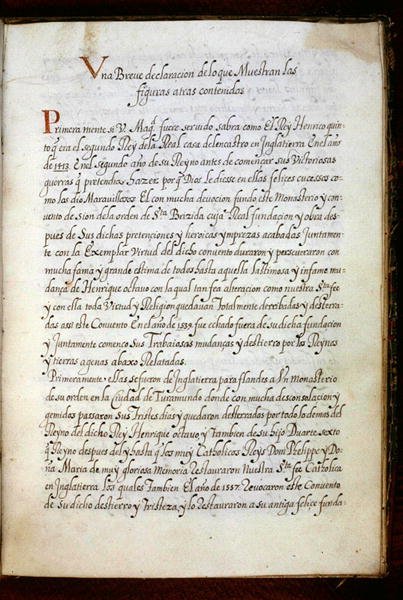 Vna Breve declaracion de lo que Muestran las
figuras atras contenidas
Primera mente si V. Magᵈ. fuere servido sabra como El Rey Henrico quin-
to q̃ era el segundo Rey de la Real casa de lencastro en Inglatierra En el año
de 1413. En el segundo año de su Reyno antes de començar sus Victoriosas
guerras q̃ pretendia hazer, porq̃ Dios le diesse en ellas felices sucessos co-
mo las dio Maravillosos. El con mucha devocion fundo este Monasterio y con-
vento de Sion de la orden de Sᵗᵃ Brizida cuja Real fundacion y obra des-
pues de Sus dichas pretenciones y heroicas ymprezas acabadas Juntamen-
te con la Exemplar Virtud del dicho convento duraron y perseveraron con
mucha fama y grande estima de todos hasta aquella lastimosa y infame mu-
dança de Henrique octavo con la qual tan fea alteracion como nuestra Sᵗᵃ fee
y con ella toda Virtud y Religion quedavan Totalmente derribadas y desterra-
das assi este Convento En el año de 1539. fue echado fuera de su dicha fundacion
y Juntamente començo sus Trabajosas mudanças y destierro por los Reynos
y tierras agenas abaxo Relatadas.
Primeramente ellas se fueron de Inglatierra para flandes a Vn monasterio
de su orden en la Ciudad de Turamundo donde con mucha desconsolacion y
gemidos passaron Sus Tristes dias y quedaron desterradas por todo lo demas del
Reyno del dicho Rey Henrique octavo y tambien de su hijo Duarte sexto
q̃ Reyno despues del y hasta q̃ los muy Catholicos Reys Dom Phelippe y Do-
ña Maria de muy gloriosa Memoria Restauraron Nuestra Sᵗᵃ fee Catholica
en Inglatierra los quales Tambien El año de 1557. Revocaron este Convento
de Su dicho destierro y tristeza, y lo Restauraron a su antiga felice funda-